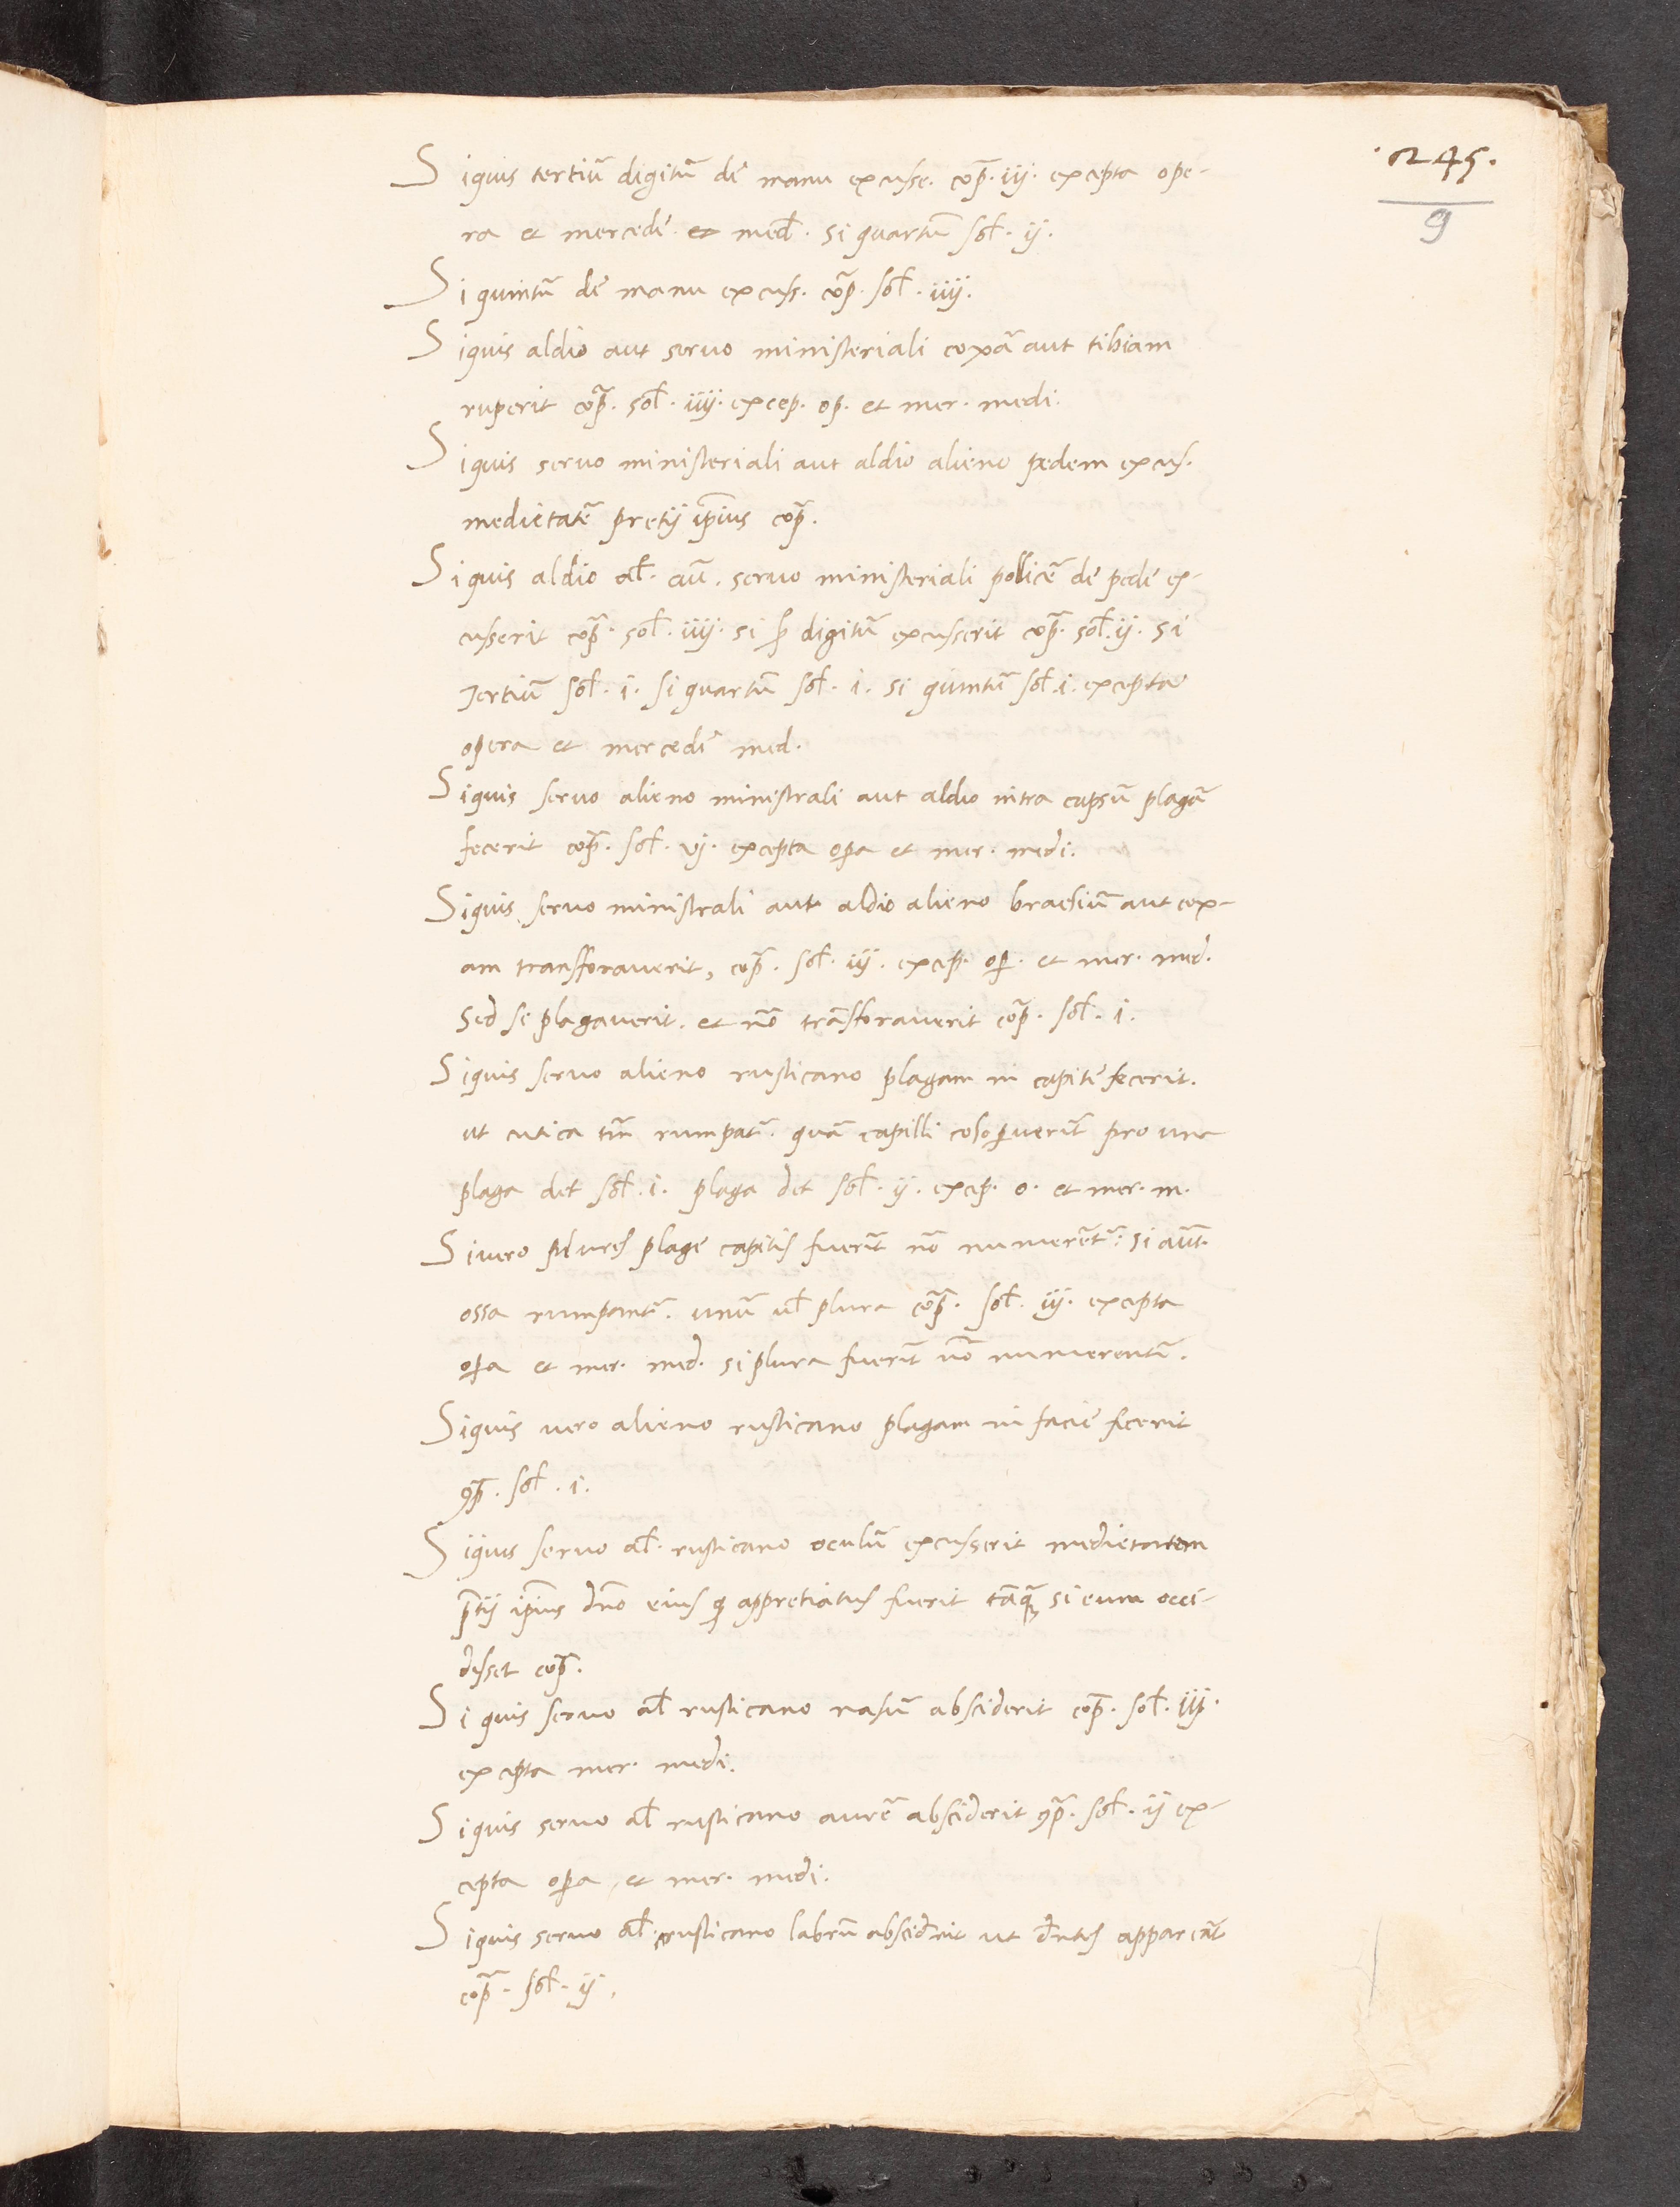 ·245·
9
Siquis tertiũ digitũ de manu excusse. cõp. iij. excepta ope-
ra et mercede. et med. si quartũ sol. ij.
Si quintũ de manu excuss. cõp. sol. iiij.
Siquis aldio aut seruo ministeriali coxã aut tibiam
ruperit cõp. sol. iiij. excep. op. et mer. medi.
Siquis seruo ministeriali aut aldio alieno pedem excus.
medietatẽ pretij ip̃ius cõp.
Siquis aldio al. aũ. seruo ministeriali pollicẽ de pede ex-
cusserit cõp. sol. iiij. si digitũ excusserit cõp. sol. ij. si
tertiũ sol. i. si quartũ sol. i. si quintũ sol. i. excepta
opera et mercede med.
Siquis seruo alieno ministrali aut aldio intra capsũ plagã
fecerit cõp. sol. vj. excepta opa et mer. medi.
Siquis seruo ministrali aut aldio alieno brachiũ aut cox-
am transforauerit, cõp. sol. iij. excep. op. et mer. med.
Sed si plagauerit. et nõ trãsforauerit cõp. sol. i.
Siquis seruo alieno rusticano plagam in capite fecerit.
ut cutica tm̃ rumpat̃. quã capilli copuerit̃ pro una
plaga det sol. i. plaga det sol. ij. excep. o. et mer. m.
Si uero plures plage capitis fuerit̃ nõ numerẽt̃: si aũt.
ossa rumpant̃. unũ ul̃ plura cõp. sol. iij. excepta
opa et mer. med. si plura fuerit̃ nõ numerent̃.
Siquis uero alieno rusticano plagam in facie fecerit
9p̃. sol. i.
Siquis seruo al. rusticano oculũ excusserit medietatem
p̃tij ip̃ius dño eius q̃ appretiatus fuerit tãq̃ si eum occi-
disset cõp.
Si quis seruo al rusticano nasũ absciderit cõp. sol. iiij.
excepta mer. medi.
Siquis seruo al rusticano aurẽ absciderit 9p̃. sol. ij ex-
cepta opa et mer. medi.
Siquis seruo al. rusticano labrũ absciderit ut dentes appareãt
cõp. sol. ij.